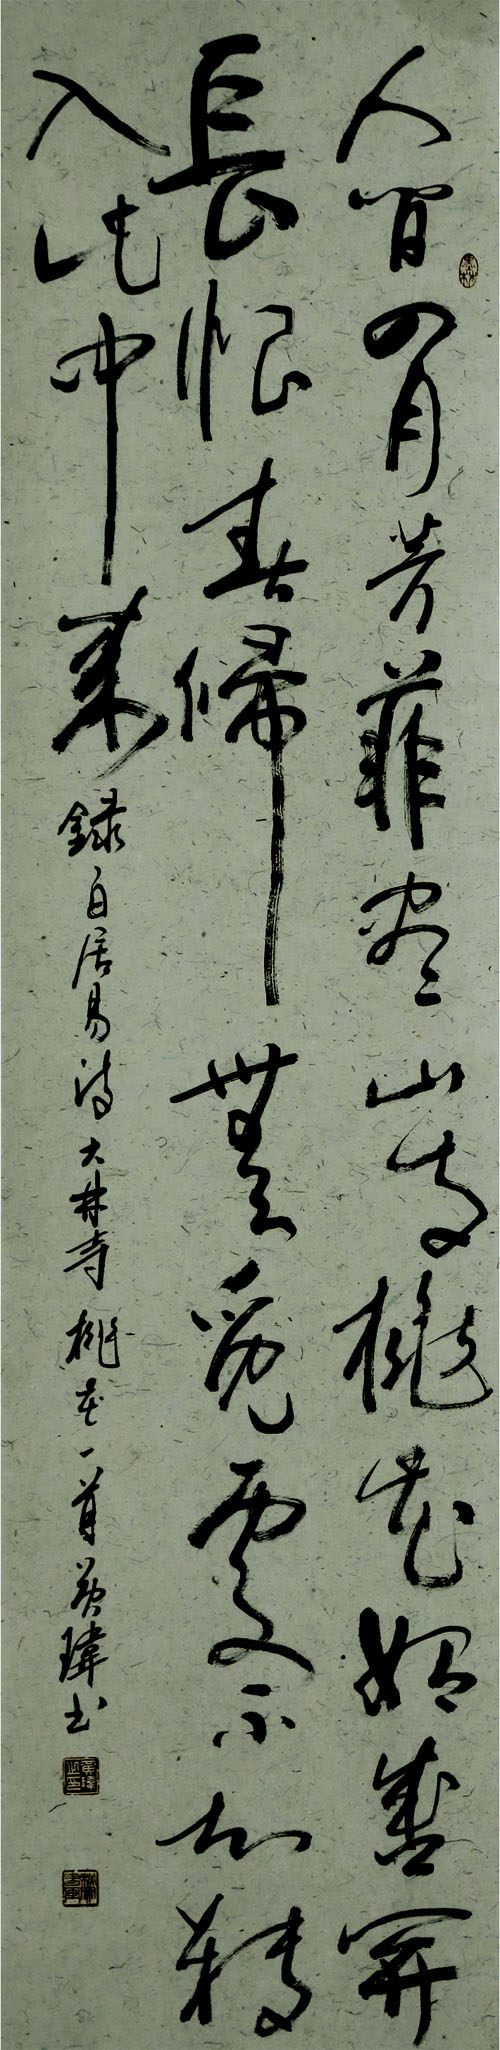 人间四月芳菲尽山寺桃花始盛開
長恨春歸無覓處不知轉
入此中来 録白居易诗大林寺桃花一首黄瑋书